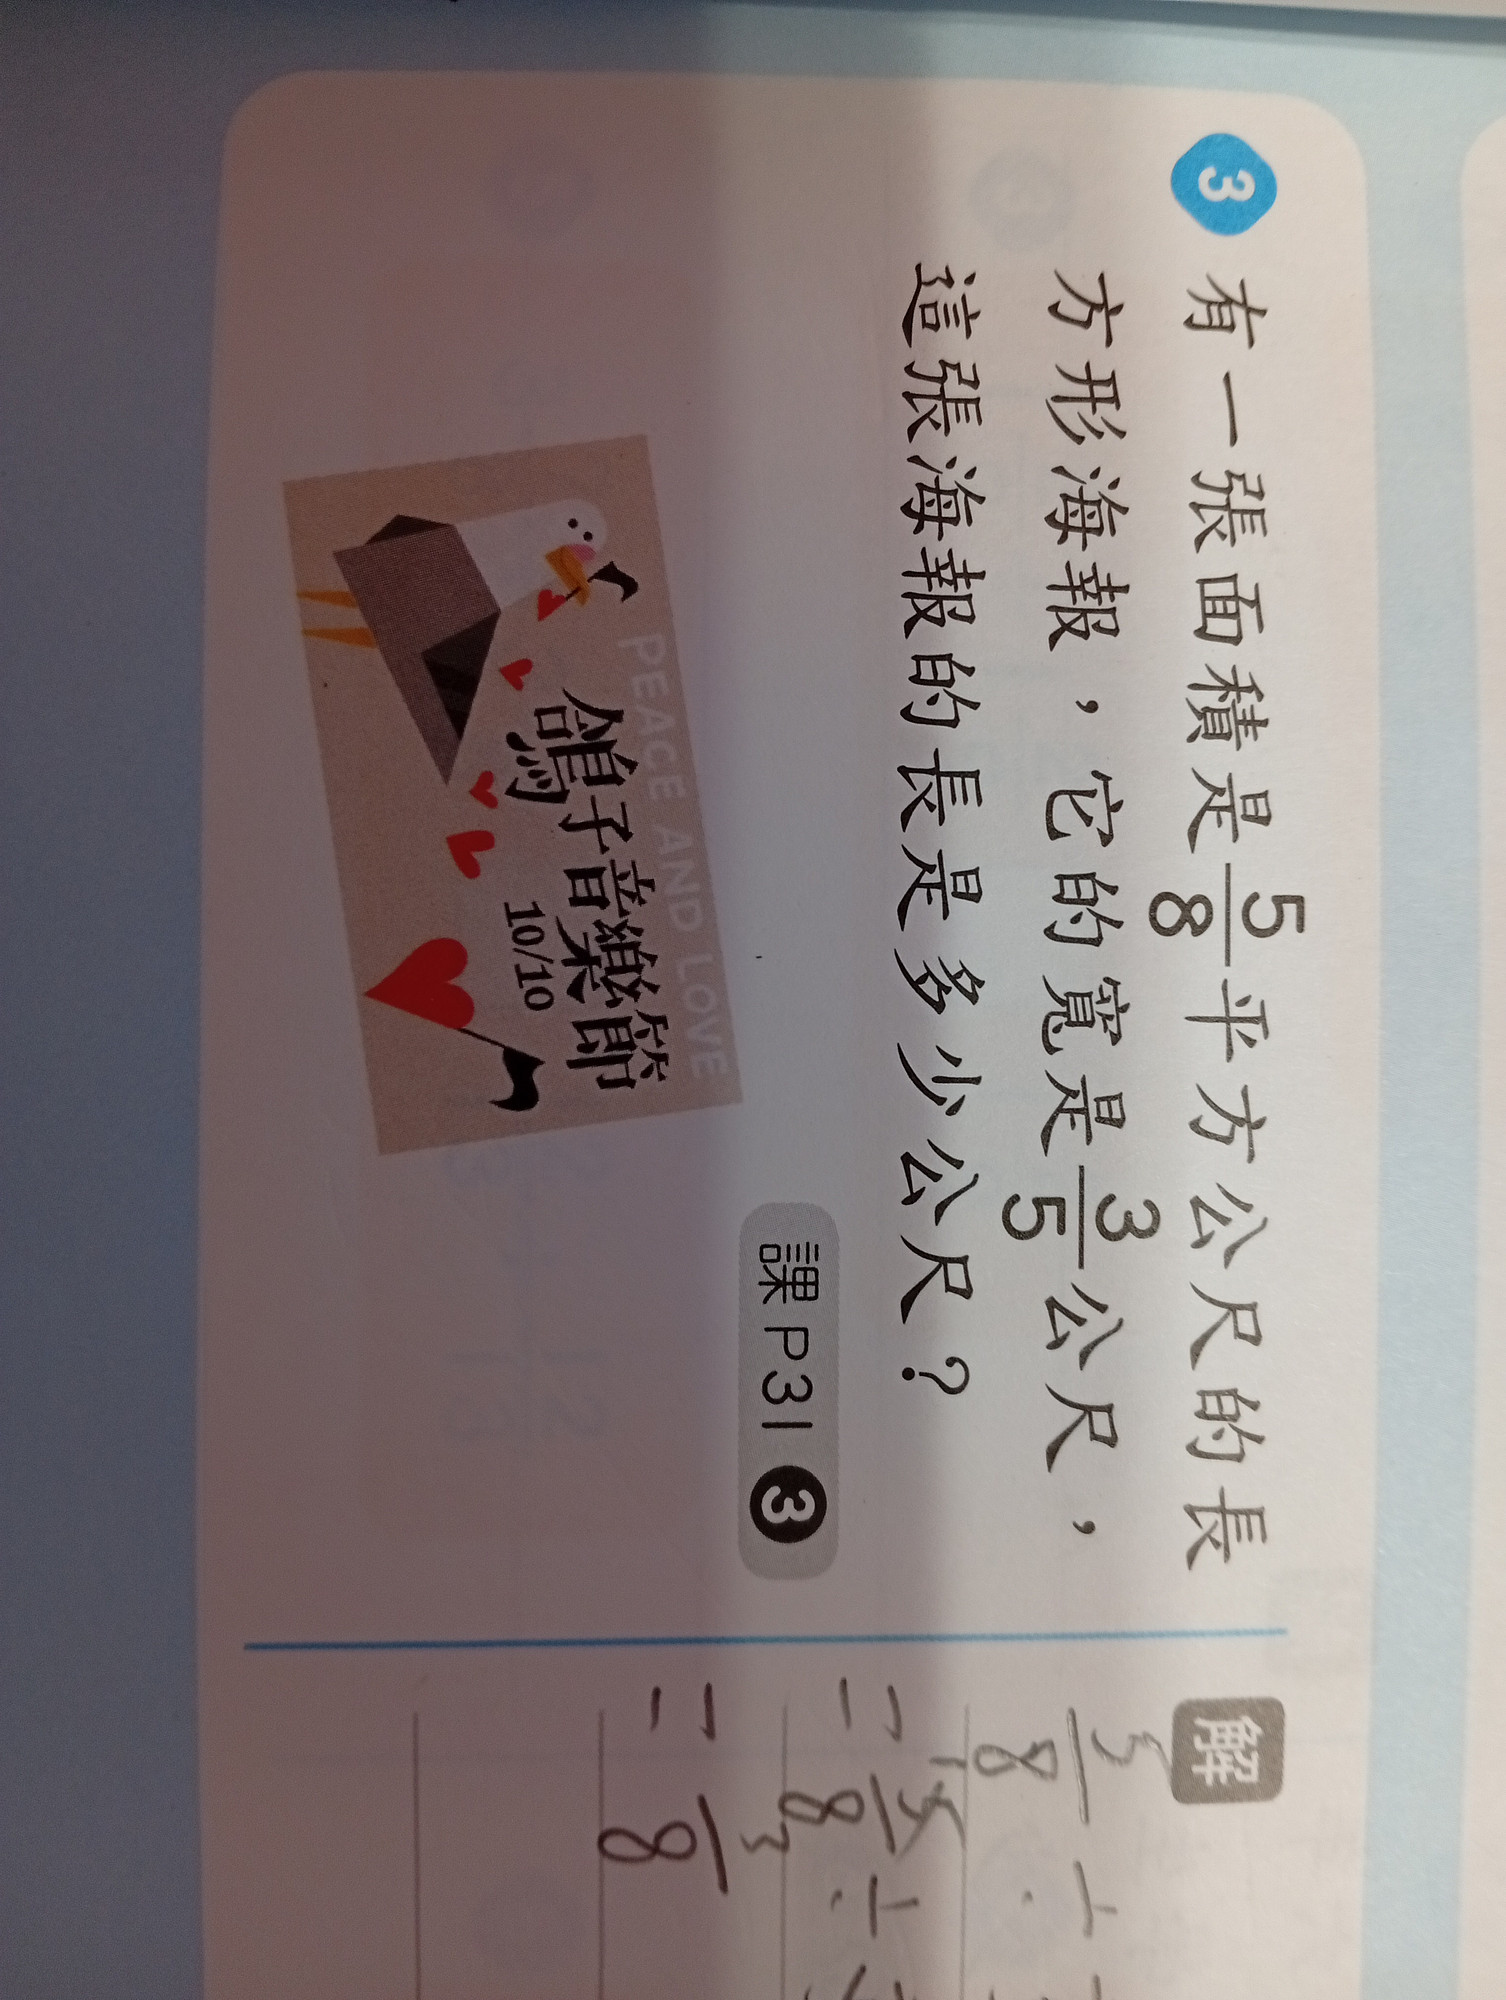 3 有一張面積是5/8平方公尺的長
方形海報，它的寬是3/5公尺，
這張海報的長是多少公尺？
課 P31 3
PEACE AND LOVE
鴿子音樂節
10/10
解
5/8 ÷
= 5/8 ÷
= 3/8